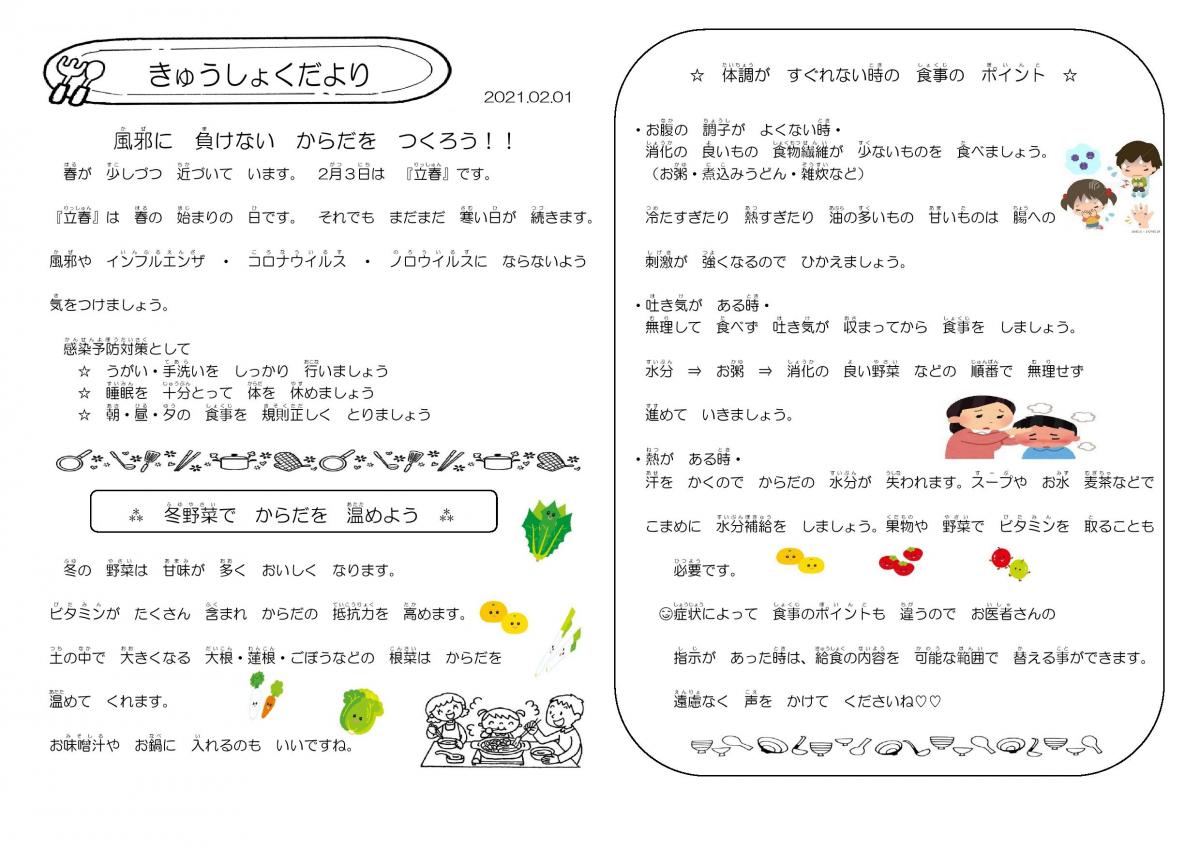 きゅうしょくだより
2021.02.01
風邪に 負けない からだを つくろう！！
春が 少しづつ 近づいて います。 2月3日は 『立春』です。
『立春』は 春の 始まりの 日です。 それでも まだまだ 寒い日が 続きます。
風邪や インフルエンザ ・ コロナウイルス ・ ノロウイルスに ならないよう
気をつけましょう。
感染予防対策として
☆ うがい・手洗いを しっかり 行いましょう
☆ 睡眠を 十分とって 体を 休めましょう
☆ 朝・昼・夕の 食事を 規則正しく とりましょう
⁂ 冬野菜で からだを 温めよう ⁂
冬の 野菜は 甘味が 多く おいしく なります。
ビタミンが たくさん 含まれ からだの 抵抗力を 高めます。
土の中で 大きくなる 大根・蓮根・ごぼうなどの 根菜は からだを
温めて くれます。
お味噌汁や お鍋に 入れるのも いいですね。
☆ 体調が すぐれない時の 食事の ポイント ☆
・お腹の 調子が よくない時・
消化の 良いもの 食物繊維が 少ないものを 食べましょう。
（お粥・煮込みうどん・雑炊など）
冷たすぎたり 熱すぎたり 油の多いもの 甘いものは 腸への
刺激が 強くなるので ひかえましょう。
・吐き気が ある時・
無理して 食べず 吐き気が 収まってから 食事を しましょう。
水分 ⇒ お粥 ⇒ 消化の 良い野菜 などの 順番で 無理せず
進めて いきましょう。
・熱が ある時・
汗を かくので からだの 水分が 失われます。スープや お水 麦茶などで
こまめに 水分補給を しましょう。果物や 野菜で ビタミンを 取ることも
必要です。
☺症状によって 食事のポイントも 違うので お医者さんの
指示が あった時は、給食の内容を 可能な範囲で 替える事ができます。
遠慮なく 声を かけて くださいね♡♡